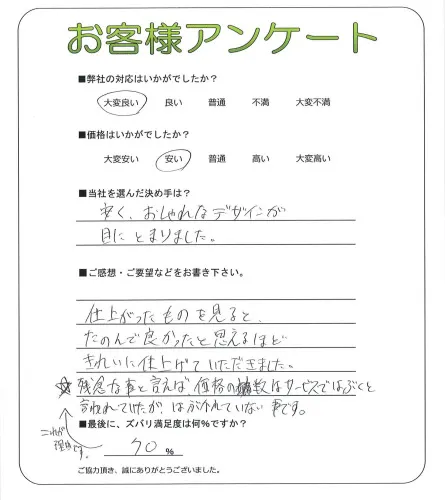 お客様アンケート
■弊社の対応はいかがでしたか？
大変良い 良い 普通 不満 大変不満
■価格はいかがでしたか？
大変安い 安い 普通 高い 大変高い
■当社を選んだ決め手は？
安く、おしゃれなデザインが
目にとまりました。
■ご感想・ご要望などをお書き下さい。
仕上がったものを見ると、
たのんで良かったと思えるほど
きれいに仕上げていただきました。
☆残念な事と言えば、価格の端数はサービスではぶくと
言われていたが、はぶかれていない事です。
これが
理由です。
■最後に、ズバリ満足度は何%ですか？
90 %
ご協力頂き、誠にありがとうございました。